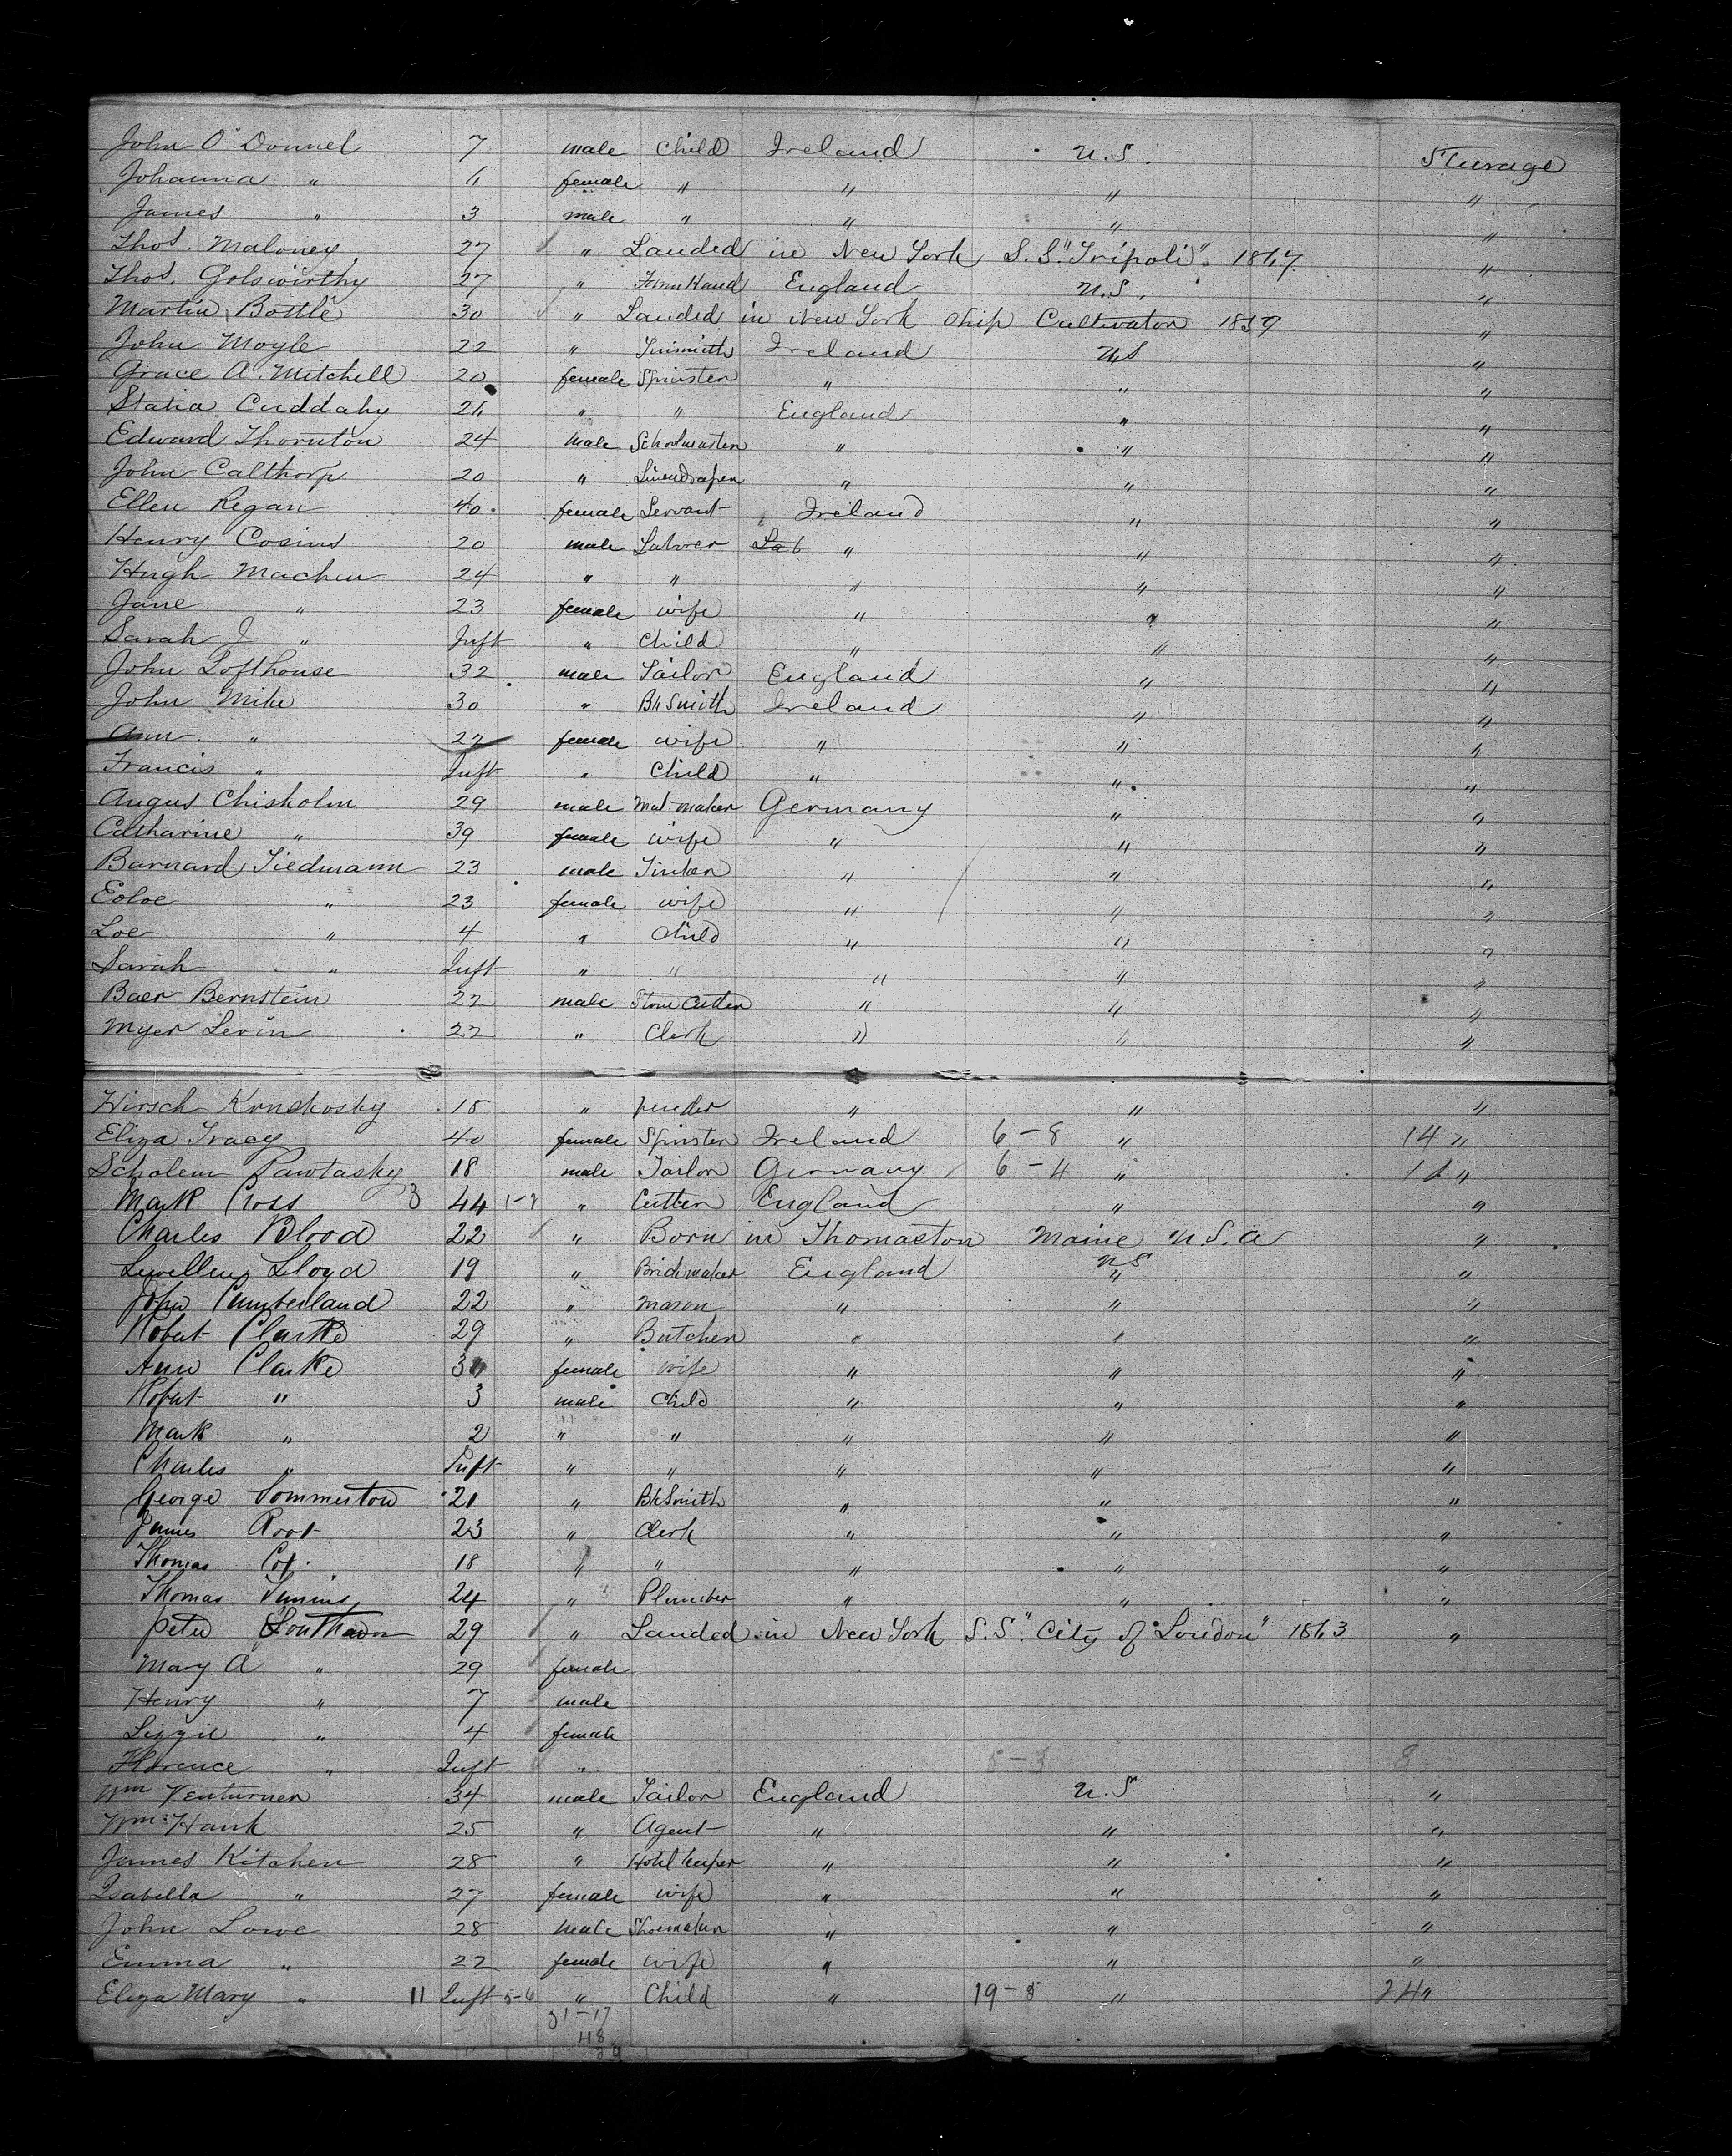 John O'Donnel 7 male Child Ireland U.S. Steerage
Johanna " 6 female " " " "
James " 3 male " " " "
Thos. Maloney 27 " Landed in New York S.S. "Tripoli" 1867 "
Thos. Golsworthy 27 " Farm Hand England U.S. "
Martin Bottle 30 " Landed in New York Ship Cultivator 1859 "
John Moyle 22 " Tinsmith Ireland US "
Grace A. Mitchell 20 female Spinster " " "
Statia Cuddahy 26 " " England " "
Edward Thornton 24 male Schoolmaster " " "
John Calthorp 20 " Linendraper " " "
Ellen Regan 40 female Servant Ireland " "
Henry Cosins 20 male Laborer Lab " " "
Hugh Machen 24 " " " " "
Jane " 23 female wife " " "
Sarah J " Inft " Child " " "
John Lofthouse 32 male Tailor England " "
John Mike 30 " Bk Smith Ireland " "
Ann " 22 female wife " " "
Francis " Inft " Child " " "
Angus Chisholm 29 male Mat-maker Germany " "
Catharine " 39 female wife " " "
Barnard Tiedmann 23 male Tinker " " "
Eoloe " 23 female wife " " "
Loe " 4 " Child " " "
Sarah " Inft " " " " "
Baer Bernstein 22 male Stone Cutter " " "
Myer Levin 22 " Clerk " " "
Hirsch Konskosky 18 " " " "
Eliza Tracy 40 female Spinster Ireland 6-8 " 14 "
Scholem Pawtasky 18 male Tailor Germany 6-4 " "
Mark Cross 3 44 1-2 " Cutter England " "
Charles Blood 22 " Born in Thomaston Maine U.S.A "
Lewellen Lloyd 19 " Brickmaker England US " "
John Cumberland 22 " Mason " " "
Robert Clarke 29 " Butcher " " "
Ann Clarke female wife " " "
Robert " 3 male Child " " "
Mark " 2 " " " " "
Charles " Inft " " " " "
George Sommerton 21 " Bk Smith " " "
James Root 23 " Clerk " " "
Thomas Cox 18 " " " " "
Thomas 24 " Plumber " " "
Peter Southern 29 " Landed in New York S.S. "City of London" 1863 "
Mary A " 29 female
Henry " 7 male
Lizzie " 4 female
Florence " Inft " 5-3 8
Wm Venturner 34 male Tailor England U.S "
Wm Hank 25 " Agent " " "
James Kitchen 28 " Hotel keeper " " "
Isabella " 27 female wife " " "
John Lowe 28 male Shoemaker " " "
Emma " 22 female wife " " "
Eliza Mary " 11 Inft 5-6 " Child " 19-8 " 24 "
31-17
48